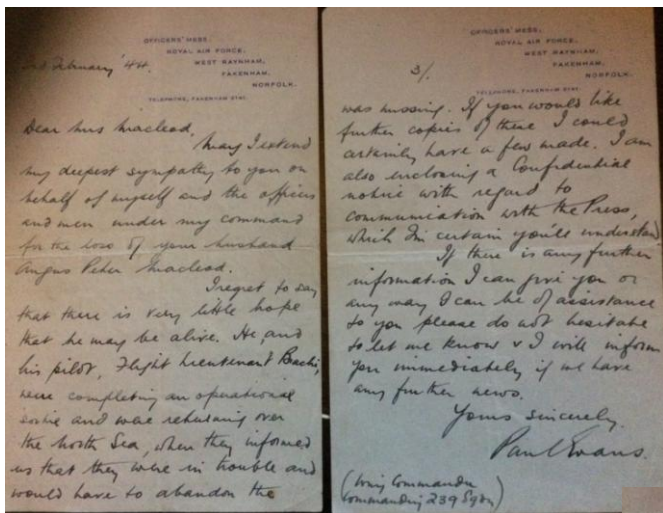 OFFICERS' MESS,
ROYAL AIR FORCE,
WEST RAYNHAM,
FAKENHAM,
NORFOLK.
February '44.
TELEPHONE, FAKENHAM
Dear Mrs Macleod,
May I extend
my deepest sympathy to you on
behalf of myself and the officers
and men under my command
for the loss of your husband
Angus Peter Macleod.
I regret to say
that there is very little hope
that he may be alive. He, and
his pilot, Flight Lieutenant
were completing an operational
sortie and were returning over
the North Sea, when they informed
us that they were in trouble and
would have to abandon the
OFFICERS' MESS,
ROYAL AIR FORCE,
WEST RAYNHAM,
FAKENHAM,
NORFOLK.
3/.
TELEPHONE, FAKENHAM
was missing. If you would like
further copies of these I could
certainly have a few made. I am
also enclosing a Confidential
notice with regard to
communication with the Press,
which I'm certain you'll understand
If there is any further
information I can give you or
any way I can be of assistance
to you please do not hesitate
to let me know & I will inform
you immediately if we have
any further news.
Yours sincerely,
Paul Evans.
(Wing Commander
Commanding 239 Sqdn)